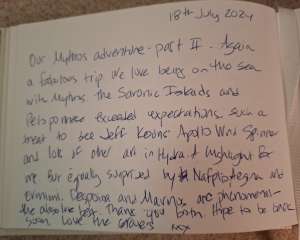 18th July 2024
Our Mythos adventure - part II. Again
a fabulous trip. We love being on the sea
with Mythos. The Saronic Islands and
Peloponnese exceeded expectations such a
treat to see Jeff Koons Apollo Wind Spinner
and lots of other art in Hydra a highlight for
me but equally surprised by Nafplio, Aegina and
Ermioni. Despoina and Marinos are phenomenal -
the absolute best. Thank you both. Hope to be back
soon. Love the
xxx